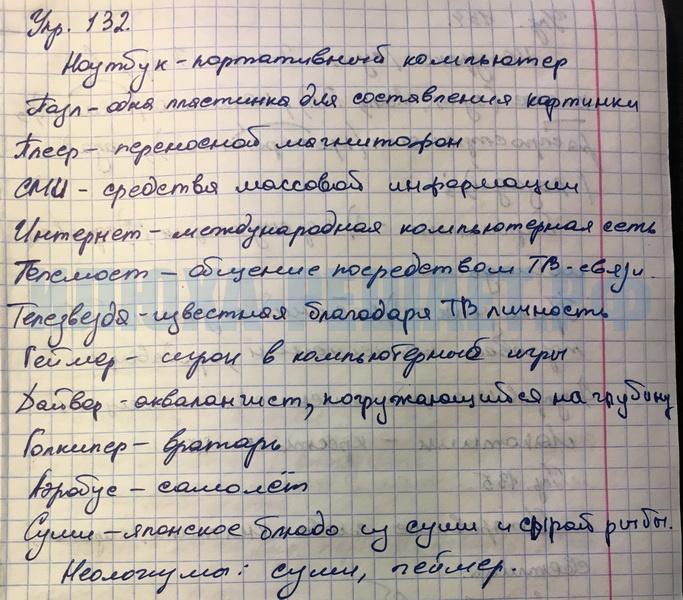 Упр. 132.
Ноутбук - портативный компьютер
Пазл - одна пластинка для составления картинки
Плеер - переносной магнитофон
СМИ - средства массовой информации
Интернет - международная компьютерная сеть
Телемост - общение посредством ТВ-связи.
Телезвезда - известная благодаря ТВ личность
Геймер - игрок в компьютерные игры
Дайвер - аквалангист, погружающийся на глубину
Голкипер - вратарь
Аэробус - самолёт
Суши - японское блюдо из суши и сырой рыбы.
Неологизмы: суши, геймер.